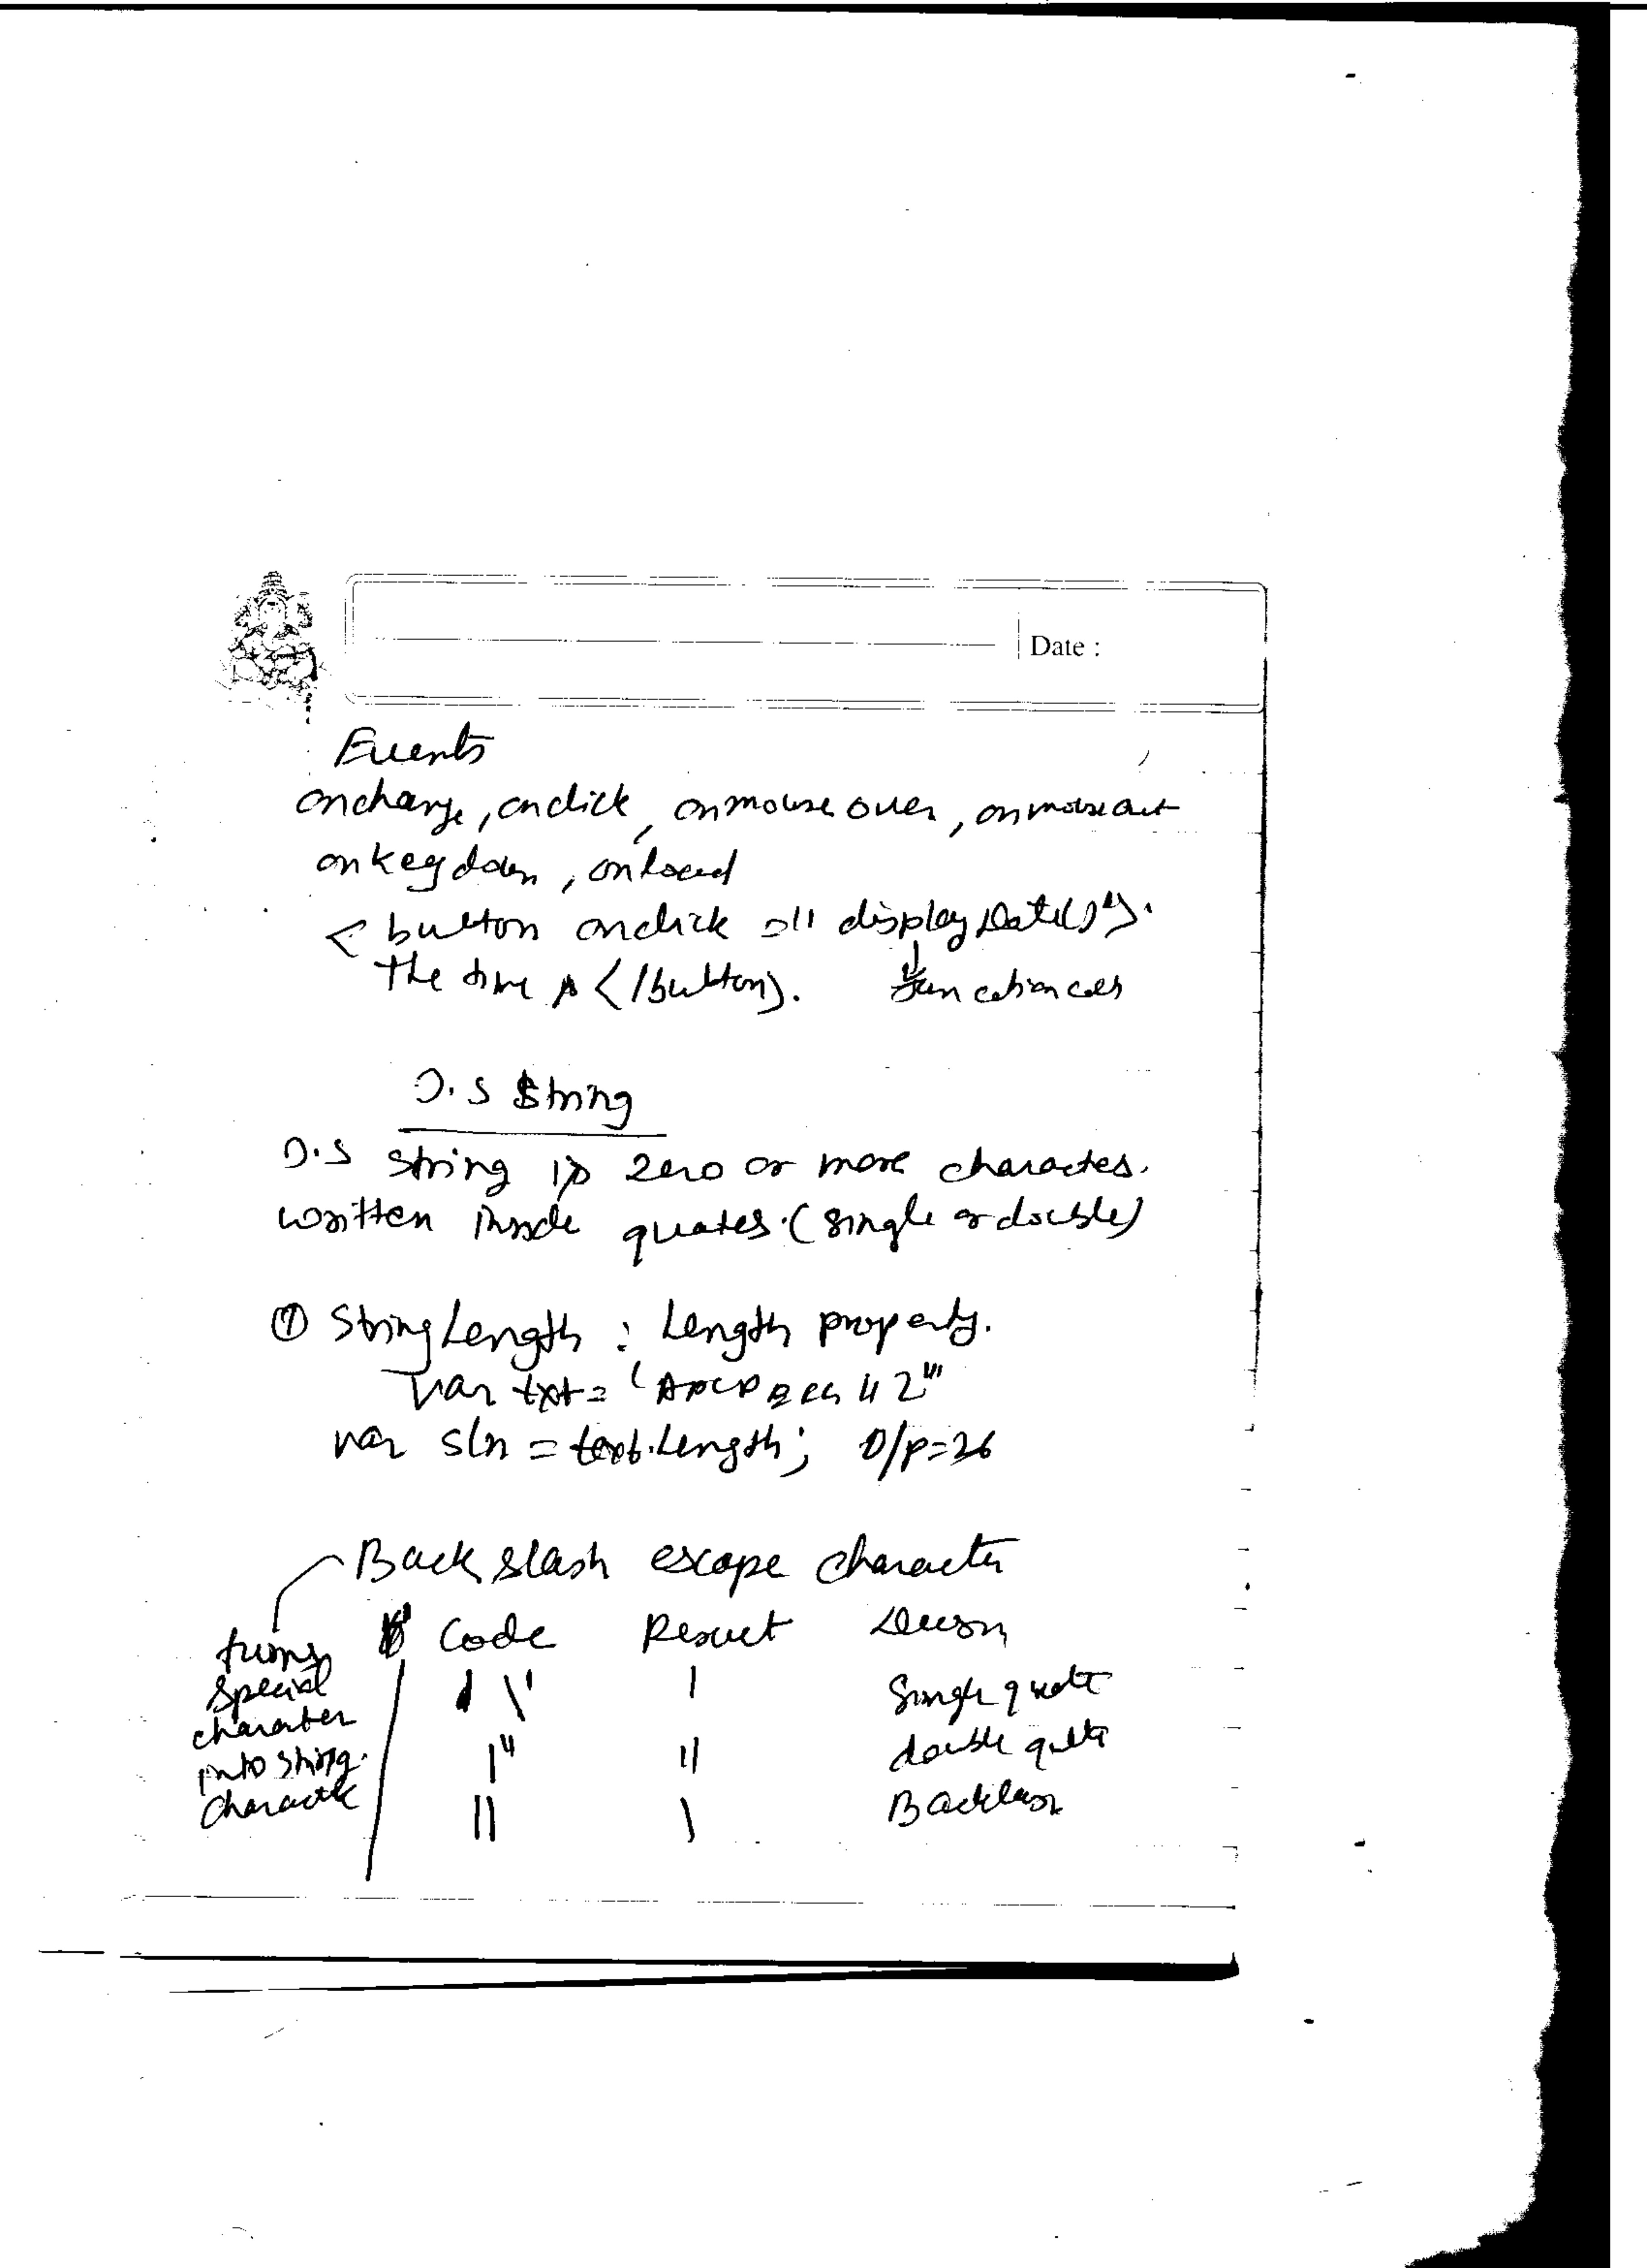 Date :
Events
onchange, onclick, onmouseover, onmouseout
onkeydown, onload
< button onclick = " displayDate()">.
The time is </button>. ↓ function call
J.S String
J.S string is zero or more characters.
written inside quotes. (single or double)
① String Length : Length property.
var txt = "
var sln = text.Length; O/p=26
Back slash escape character
Code Result
turns
special
character
into string.
character
\' ' Single quote
\" " double quote
\\ \ Backslash